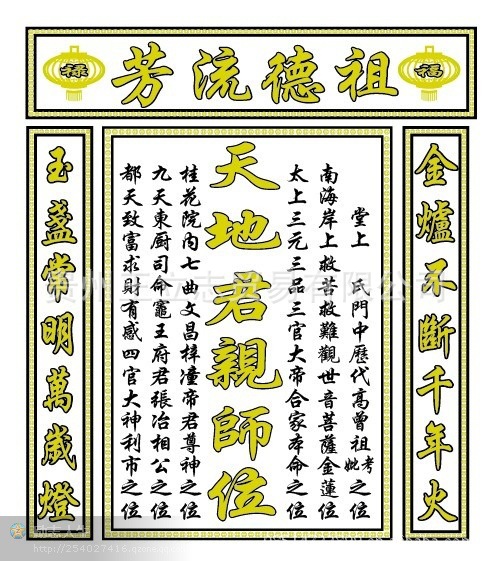 福
祖德流芳
祿
金爐不斷千年火
堂上 氏門中歷代高曾祖考妣之位
南海岸上救苦救難觀世音菩薩金蓮位
太上三元三品三官大帝合家本命之位
天地君親師位
桂花院內七曲文昌梓潼帝君尊神之位
九天東厨司命竈王府君張冶相公之位
都天致富求財有感四官大神利市之位
玉盞常明萬歲燈